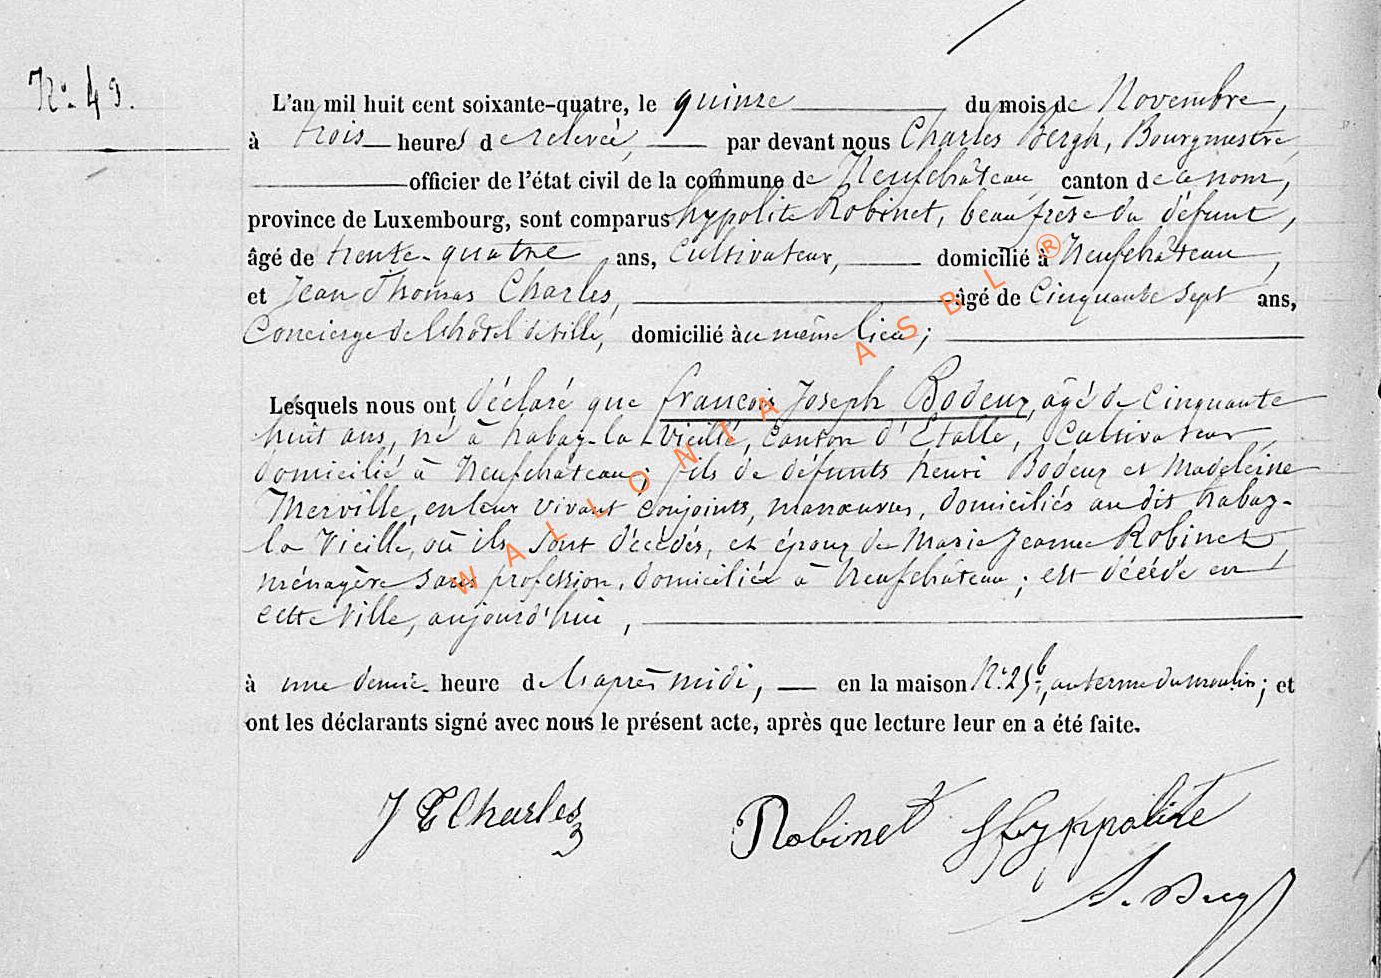 N° 49.
L'an mil huit cent soixante-quatre, le quinze du mois de Novembre,
à trois heures de relevée, par devant nous Charles Bergh, Bourgmestre,
officier de l'état civil de la commune de Neufchâteau canton de ce nom,
province de Luxembourg, sont comparus hypolite Robinet, beau frère du défunt,
âgé de trente-quatre ans, Cultivateur, domicilié à Neufchâteau,
et Jean Thomas Charles, âgé de Cinquante sept ans,
Concierge de l'hôtel de ville, domicilié au même lieu;
Lesquels nous ont déclaré que françois Joseph Bodeux, âgé de Cinquante
huit ans, né à habay-la-Vieille, Canton d'Etalle, Cultivateur,
domicilié à Neufchâteau; fils de défunts henri Bodeux et Madeleine
Merville, en leur vivant Conjoints, manœuvres, domiciliés au dit habay-
la Vieille, où ils sont décédés, et époux de Marie Jeanne Robinet,
ménagère sans profession, domiciliée à Neufchâteau; est décédé en
cette Ville, aujourd'hui,
à une demie heure de l'après midi, en la maison N° 25b, au terme du moulin; et
ont les déclarants signé avec nous le présent acte, après que lecture leur en a été faite.
J T Charles
Robinet Hyppolite
WALLONIA ASBL ®